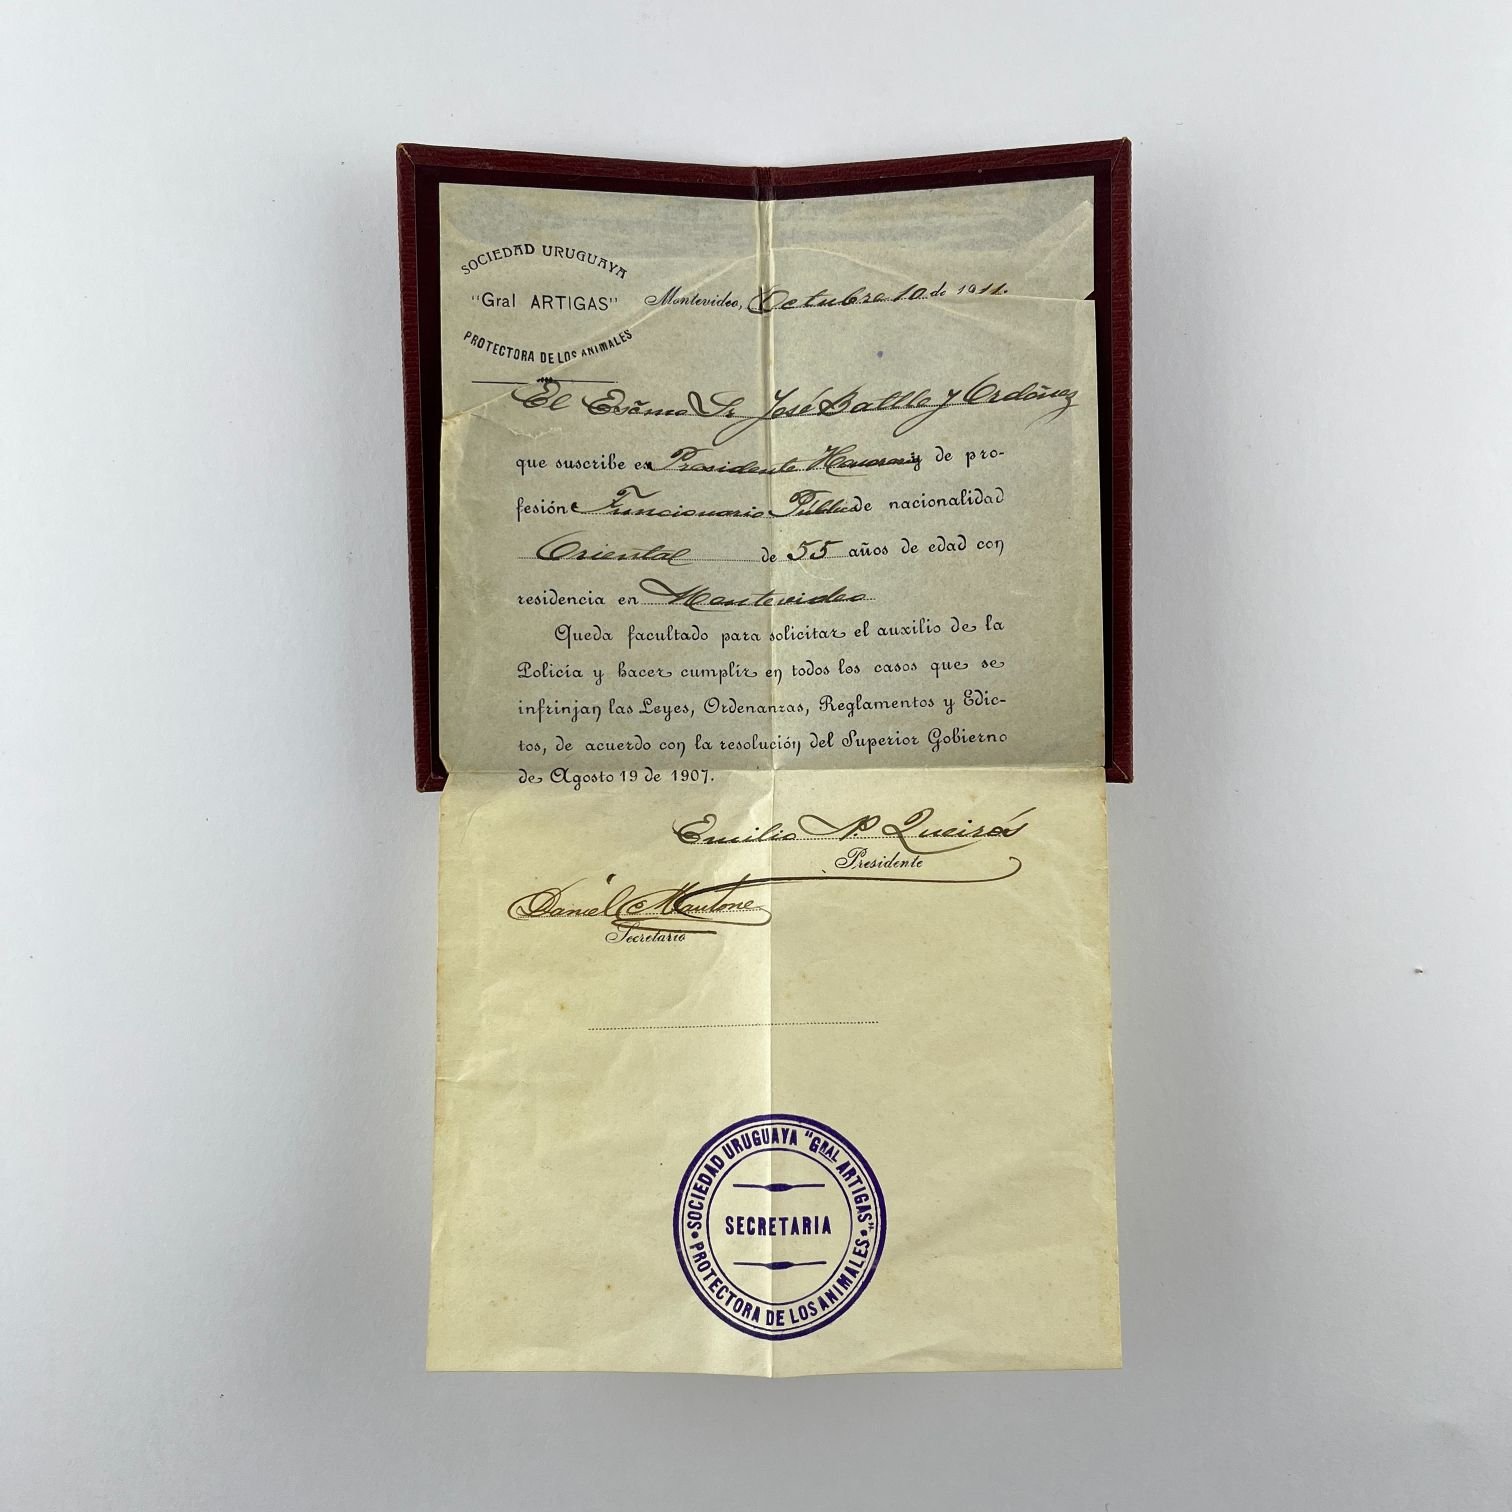 SOCIEDAD URUGUAYA
"Gral ARTIGAS"
PROTECTORA DE LOS ANIMALES
Montevideo, Octubre 10 de 1911.
El Excmo Sr José Batlle y Ordóñez
que suscribe es Presidente Honorario y de pro-
fesión Funcionario Público de nacionalidad
Oriental de 55 años de edad con
residencia en Montevideo
Queda facultado para solicitar el auxilio de la
Policía y hacer cumplir en todos los casos que se
infrinjan las Leyes, Ordenanzas, Reglamentos y Edic-
tos, de acuerdo con la resolución del Superior Gobierno
de Agosto 19 de 1907.
Emilio P. Queirós
Presidente
Daniel C Mautone
Secretario
SOCIEDAD URUGUAYA "GRAL ARTIGAS"
SECRETARIA
PROTECTORA DE LOS ANIMALES